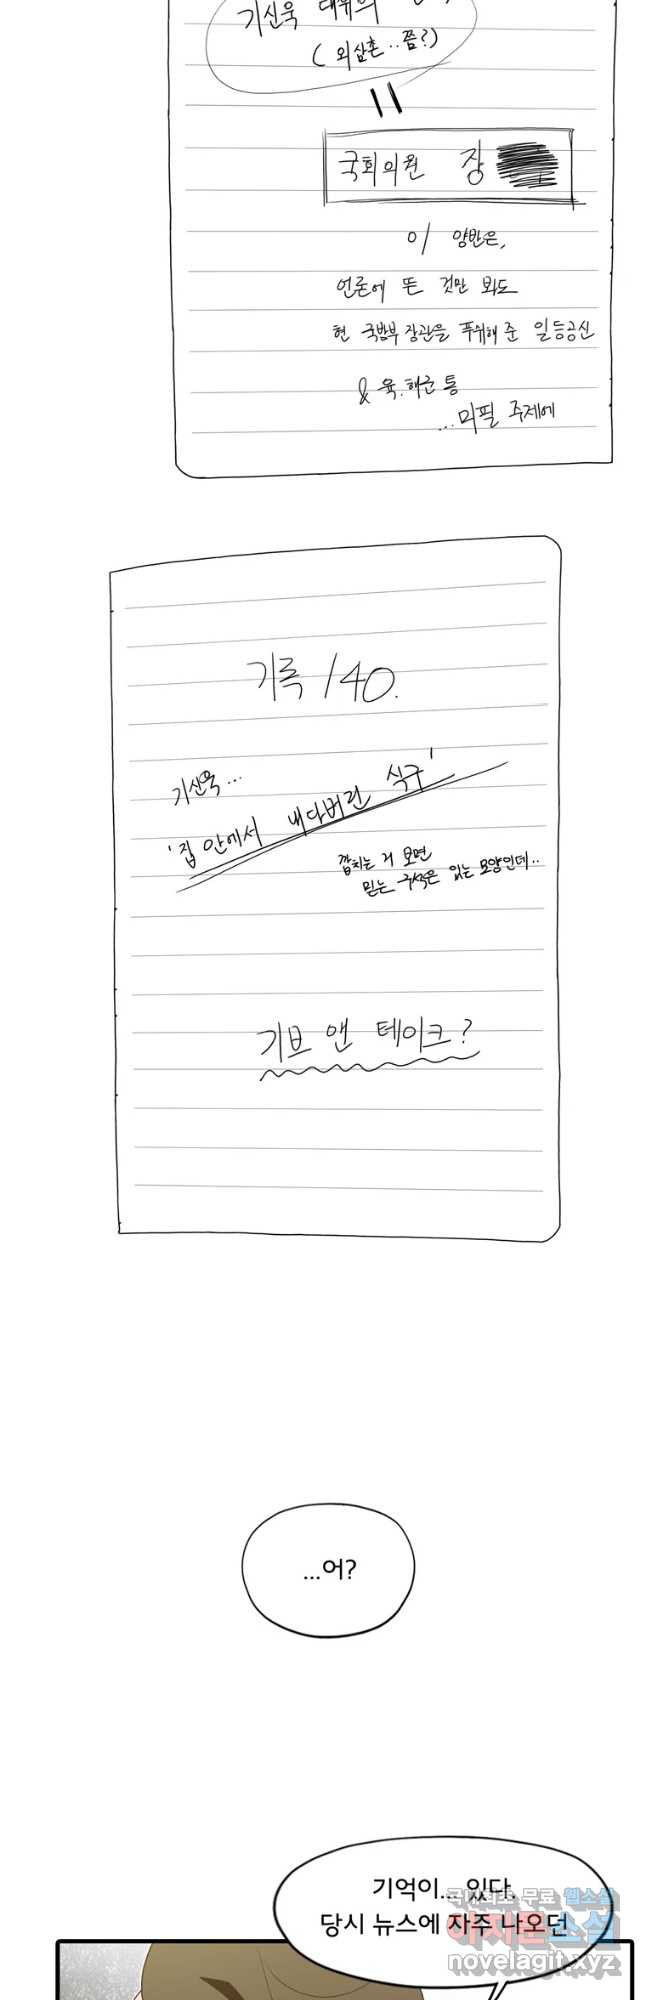 기신욱 대위의
( 외삼촌..쯤?)
국회의원 장
이 양반은,
언론에 뜬 것만 봐도
현 국방부 장관을 푸쉬해 준 일등공신
& 육.해군 통
...미필 주제에
기록 140.
기신욱...
'집 안에서 내다버린 식구'
깝치는 거 보면
믿는 구석은 있는 모양인데..
기브 앤 테이크?
...어?
기억이... 있다.
당시 뉴스에 자주 나오던
국내최초 무료 웹소설
아지툰소설
novelagit.xyz